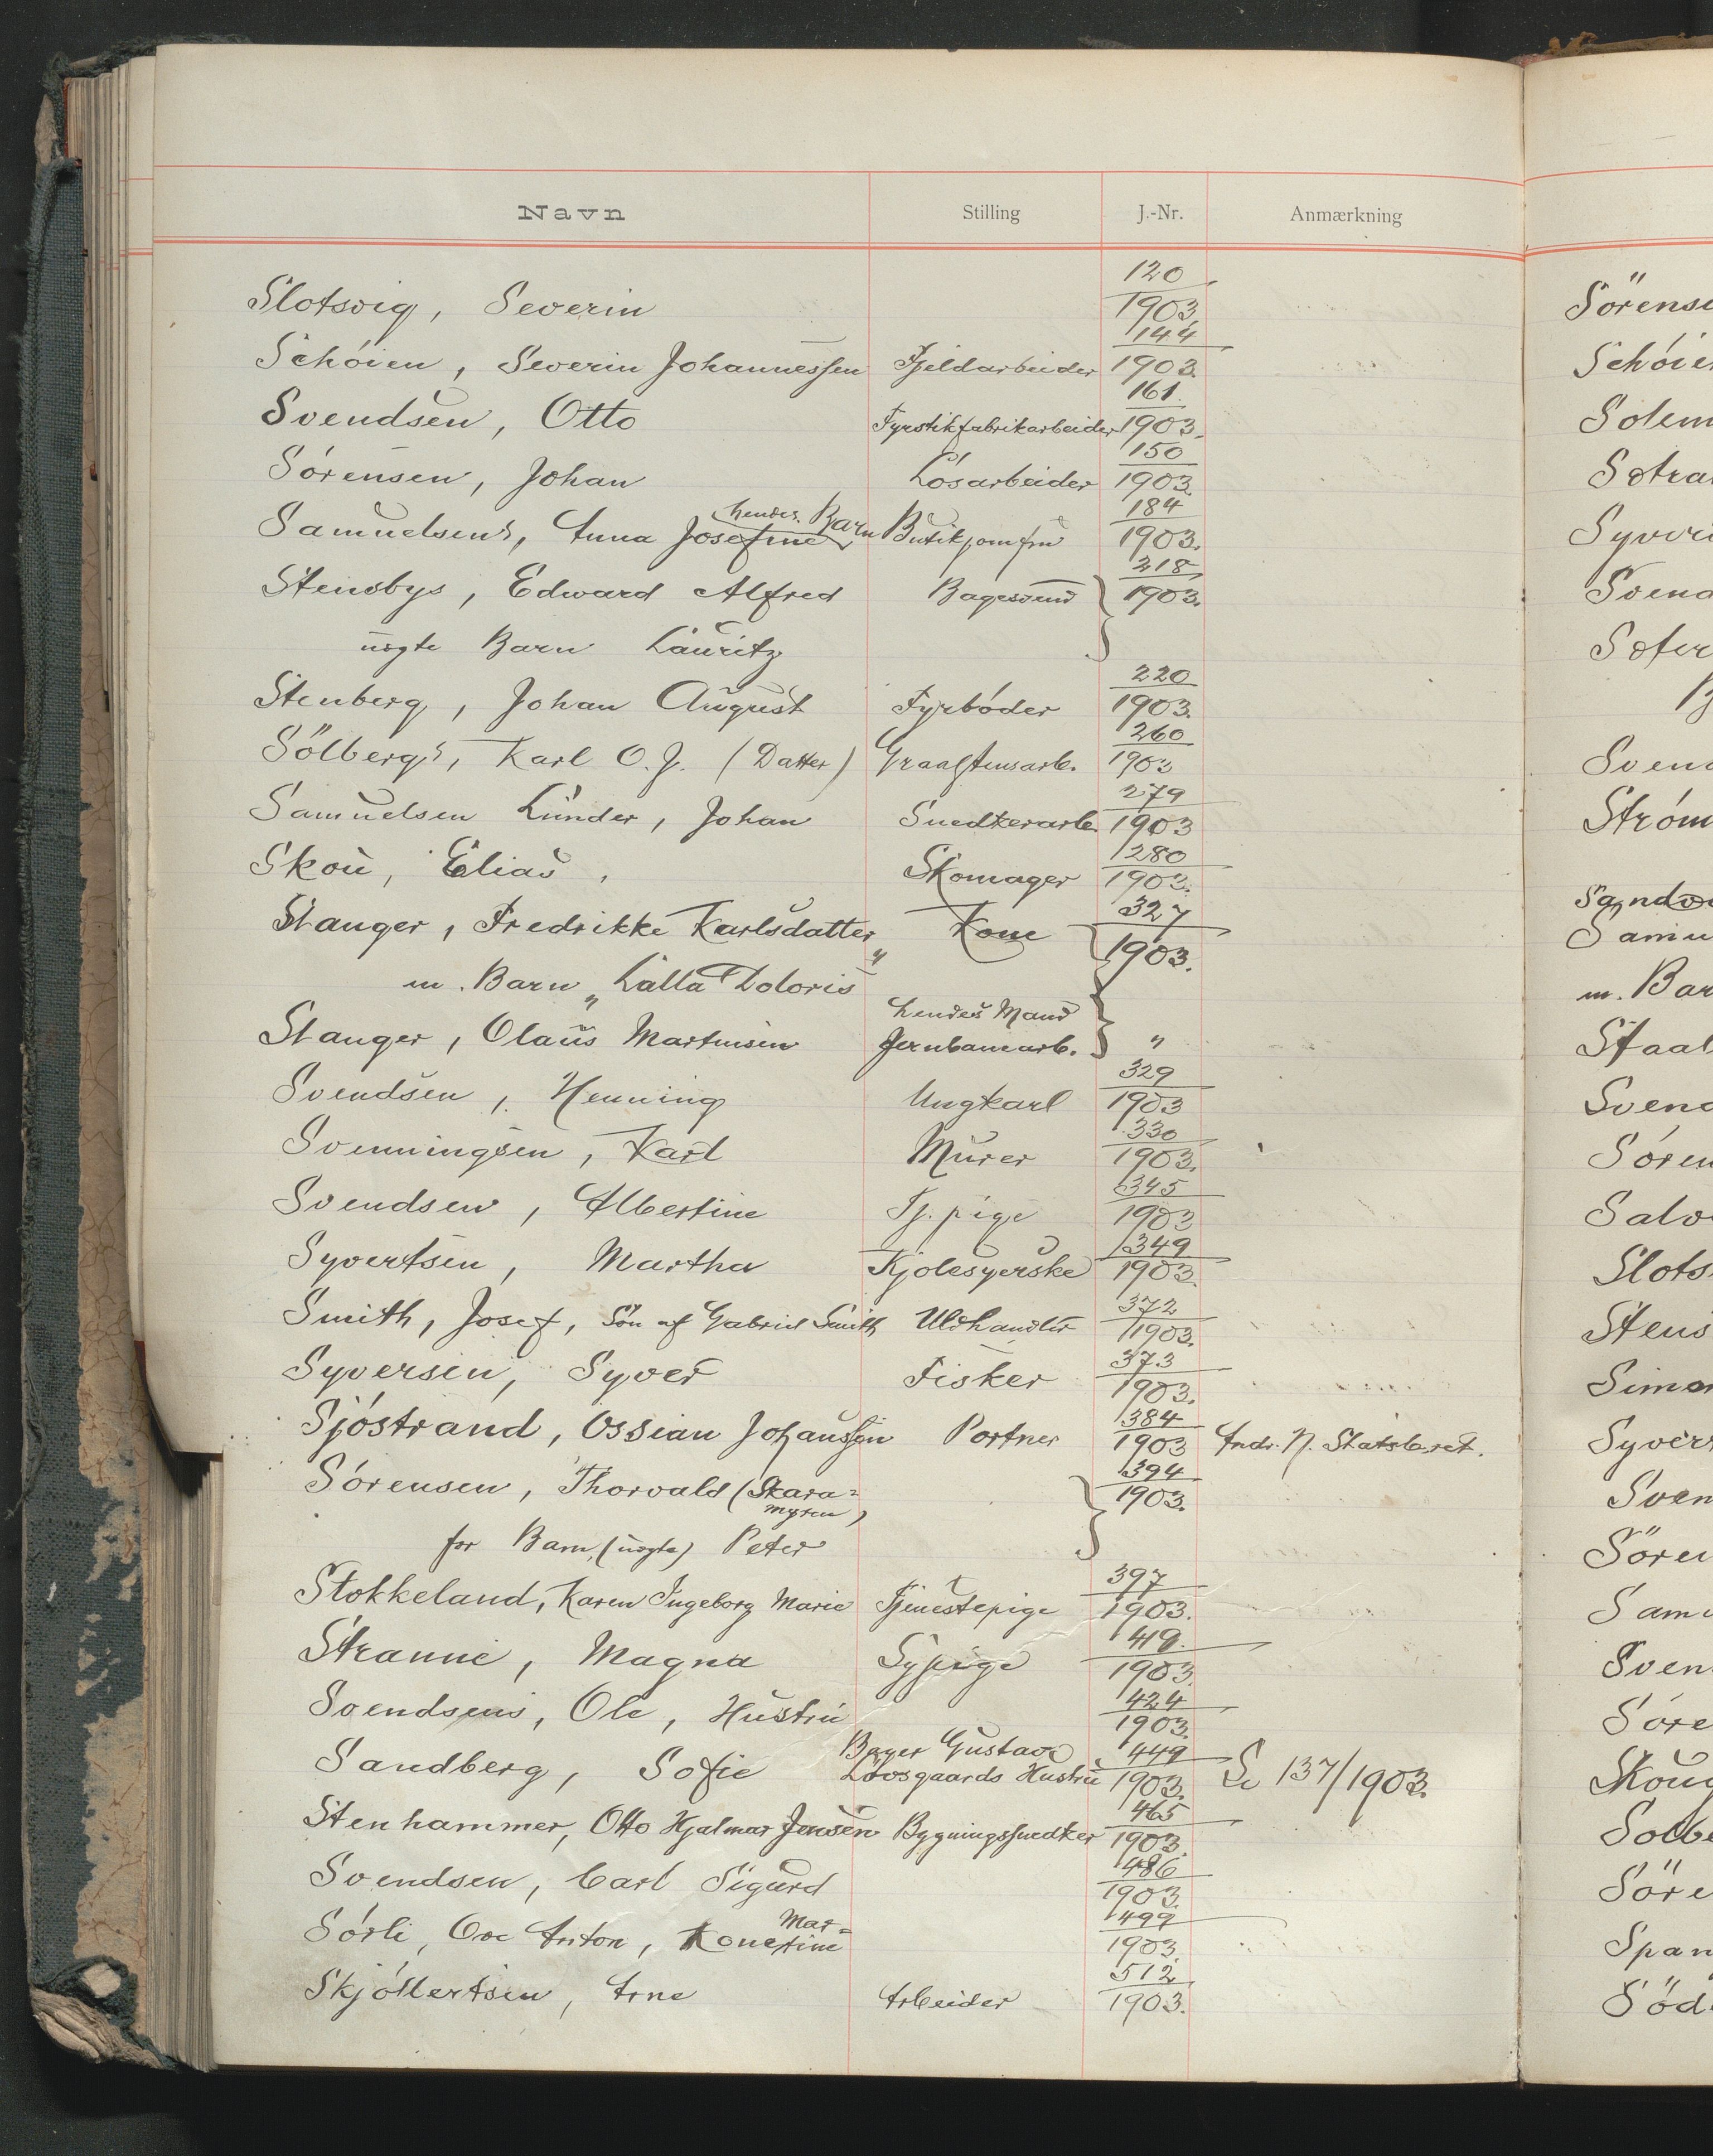 Navn Stilling J.-Nr. Anmærkning
Slotsvig, Severin 120/1903,
Schöien, Severin Johannessen Fjeldarbeider 144/1903.
Svendsen, Otto Fyrstikfabrikarbeider 161/1903.
Sörensen, Johan Lösarbeider 150/1903.
hendes Barn
Samuelsens, Anna Josefine Butikjomfru 184/1903.
Stensbys, Edward Alfred Bagesvend 218/1903.
uægte Barn Lauritz
Stenberg, Johan August Fyrböder 220/1903.
Sölbergs, Karl O. J. (Datter) Graastensarb. 260/1903
Samuelsen Lunder, Johan Snedkerarb. 279/1903
Skou, Elias, Skomager 280/1903.
Stanger, Fredrikke Karlsdatter Kone 327/1903.
m. Barn „Lalla Doloris"
hendes Mand
Stanger, Olaus Martinsen Jernbanearb. "
Svendsen, Henning Ungkarl 329/1903
Svenningsen, Karl Murer 330/1903.
Svendsen, Albertine Tj. pige 345/1903
Syvertsen, Martha Kjolesyerske 349/1903.
Smith, Josef, Sön af Gabriel Smith Uldhandler 372/1903.
Syversen, Syver Fisker 373/1903.
Sjöstrand, Ossian Johanssen Portner 384/1903 Andr. N. Statsb.ret.
Sörensen, Thorvald (Skara=
myren) 394/1903.
for Barn, (uægte) Peter
Stokkeland, Karen Ingeborg Marie Tjenestepige 397/1903.
Stranne, Magna Sypige 419/1903.
Svendsens, Ole, Hustru 424/1903.
Sandberg, Sofie Bager Gustav Lövsgaards Hustru 449/1903. Se 137/1903.
Stenhammer, Otto Hjalmar Jensen Bygningssnedker 465/1903.
Svendsen, Carl Sigurd 486/1903.
Sörli, Ove Anton, Kone Mar=
tine 499/1903.
Skjöllertsen, Arne Arbeider 512/1903.
Schöie
Solem
Svend
Svend
Ström
m. Bar
Svend
Sören
Slots
Stens
Syver
Sven
Sören
Sam
Sven
Söre
Solbe
Söre
Span
Söd